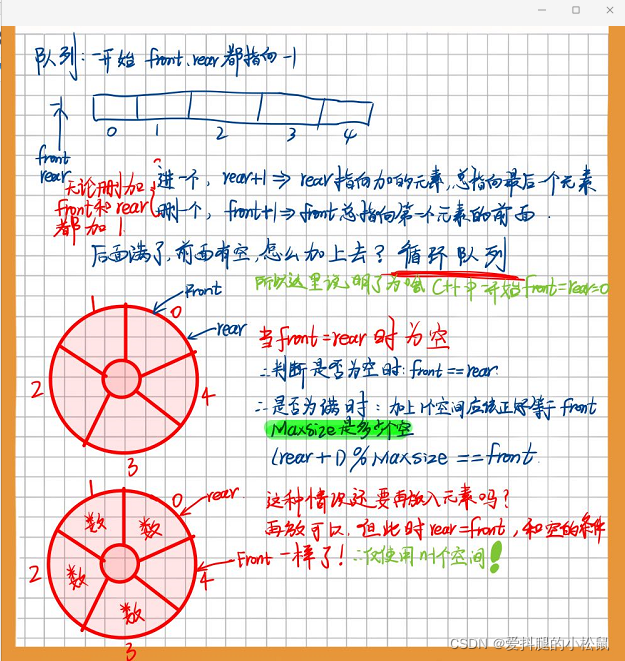 队列：一开始 front、rear都指向-1
0 1 2 3 4
front
rear
无论删加，
front和rear
都加1
进一个，rear+1 => rear指向加的元素，总指向最后一个元素
删一个，front+1 => front总指向第一个元素的前面.
后面满了，前面有空，怎么加上去？循环队列
所以这里说明了为啥C++中一开始front=rear=0
front
rear
1 0
2 4
3
当front=rear时为空
∴判断是否为空时：front==rear.
∴是否为满时：加上1个空间应该正好等于front
Maxsize是多少个空
(rear+1)%Maxsize==front.
rear
front
1 0
2 4
3
数 数
数 数
这种情况还要再放入元素吗？
再放可以，但此时rear=front，和空的条件
一样了！∴仅使用n-1个空间！
CSDN @爱抖腿的小松鼠